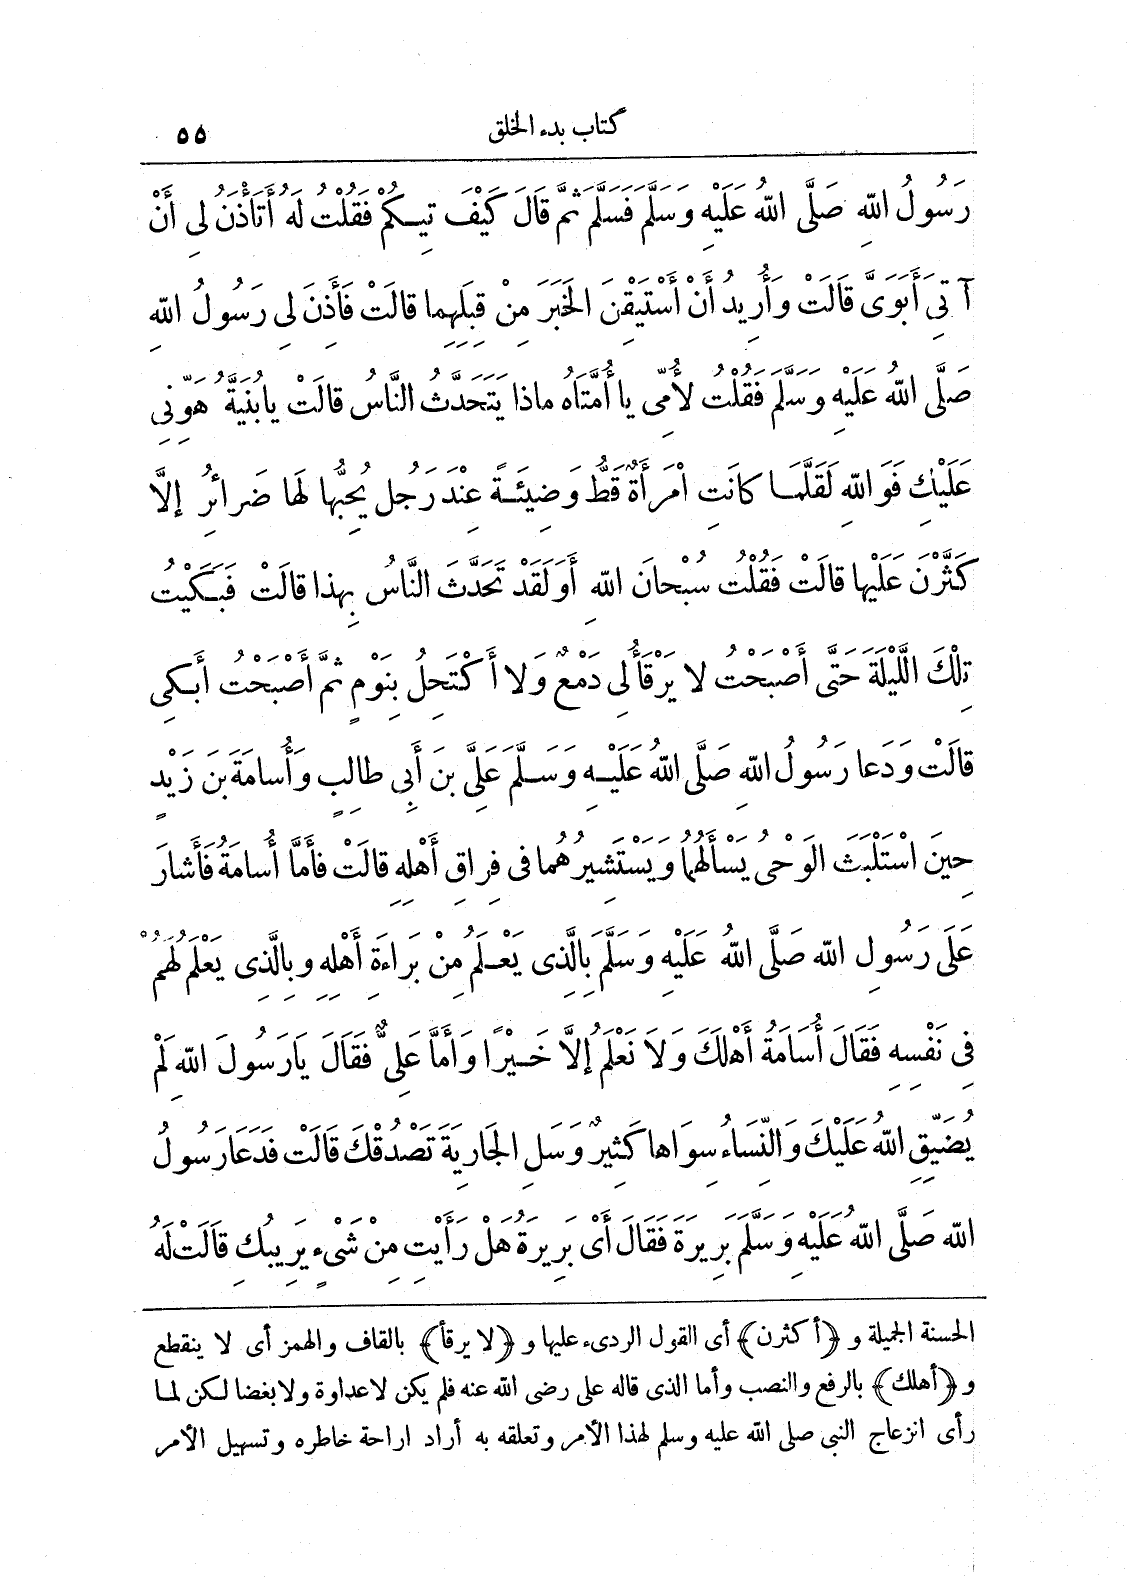 كتاب بدء الخلق ٥٥
رَسُولُ اللهِ صَلَّى اللهُ عَلَيْهِ وَسَلَّمَ فَسَلَّمَ ثُمَّ قَالَ كَيْفَ تِيكُمْ فَقُلْتُ لَهُ أَتَأْذَنُ لِي أَنْ
آتِيَ أَبَوَىَّ قَالَتْ وَأُرِيدُ أَنْ أَسْتَيْقِنَ الخَبَرَ مِنْ قِبَلِهِما قالَتْ فَأَذِنَ لِي رَسُولُ اللهِ
صَلَّى اللهُ عَلَيْهِ وَسَلَّمَ فَقُلْتُ لأُمِّى يا أُمَّتَاهُ ماذا يَتَحَدَّثُ النَّاسُ قالَتْ يابُنَيَّةُ هَوِّنِى
عَلَيْكِ فَوَاللهِ لَقَلَّمَا كانَتِ امْرَأَةٌ قَطُّ وَضِيئَةً عِنْدَ رَجُلٍ يُحِبُّها لَهَا ضَرائِرُ إلَّا
كَثَّرْنَ عَلَيْها قالَتْ فَقُلْتُ سُبْحانَ اللهِ أَوَلَقَدْ تَحَدَّثَ النَّاسُ بِهذا قالَتْ فَبَكَيْتُ
تِلْكَ اللَّيْلَةَ حَتَّى أَصْبَحْتُ لا يَرْقَأُ لِى دَمْعٌ وَلا أَكْتَحِلُ بِنَوْمٍ ثُمَّ أَصْبَحْتُ أَبْكِى
قالَتْ وَدَعا رَسُولُ اللهِ صَلَّى اللهُ عَلَيْهِ وَسَلَّمَ عَلِىَّ بنَ أَبِى طالِبٍ وَأُسامَةَ بنَ زَيْدٍ
حِينَ اسْتَلْبَثَ الوَحْىُ يَسْأَلُهُما وَيَسْتَشِيرُهُما فى فِراقِ أَهْلِهِ قالَتْ فأَمَّا أُسامَةُ فَأَشارَ
عَلَى رَسُولِ اللهِ صَلَّى اللهُ عَلَيْهِ وَسَلَّمَ بِالَّذِى يَعْلَمُ مِنْ بَراءَةِ أَهْلِهِ وبِالَّذِى يَعْلَمُ لَهُمْ
فِى نَفْسِهِ فَقَالَ أُسَامَةُ أَهْلَكَ وَلَا نَعْلَمُ إلَّا خَيْرًا وَأَمَّا عَلِىٌّ فَقَالَ يَارَسُولَ اللهِ لَمْ
يُضَيِّقِ اللهُ عَلَيْكَ وَالنِّسَاءُ سِوَاها كَثِيرٌ وَسَلِ الجَارِيَةَ تَصْدُقْكَ قَالَتْ فَدَعَا رَسُولُ
اللهِ صَلَّى اللهُ عَلَيْهِ وَسَلَّمَ بَرِيرَةَ فَقَالَ أَىْ بَرِيرَةُ هَلْ رَأَيْتِ مِنْ شَىْءٍ يَرِيبُكِ قَالَتْ لَهُ
الحسنة الجميلة و ﴿أكثرن﴾ أى القول الردىء عليها و ﴿لا يرقأ﴾ بالقاف والهمز أى لا ينقطع
و ﴿أهلك﴾ بالرفع والنصب وأما الذى قاله على رضى الله عنه فلم يكن لاعداوة ولابغضا لكن لما
رأى انزعاج النبى صلى الله عليه وسلم لهذا الأمر وتعلقه به أراد اراحة خاطره وتسهيل الأمر